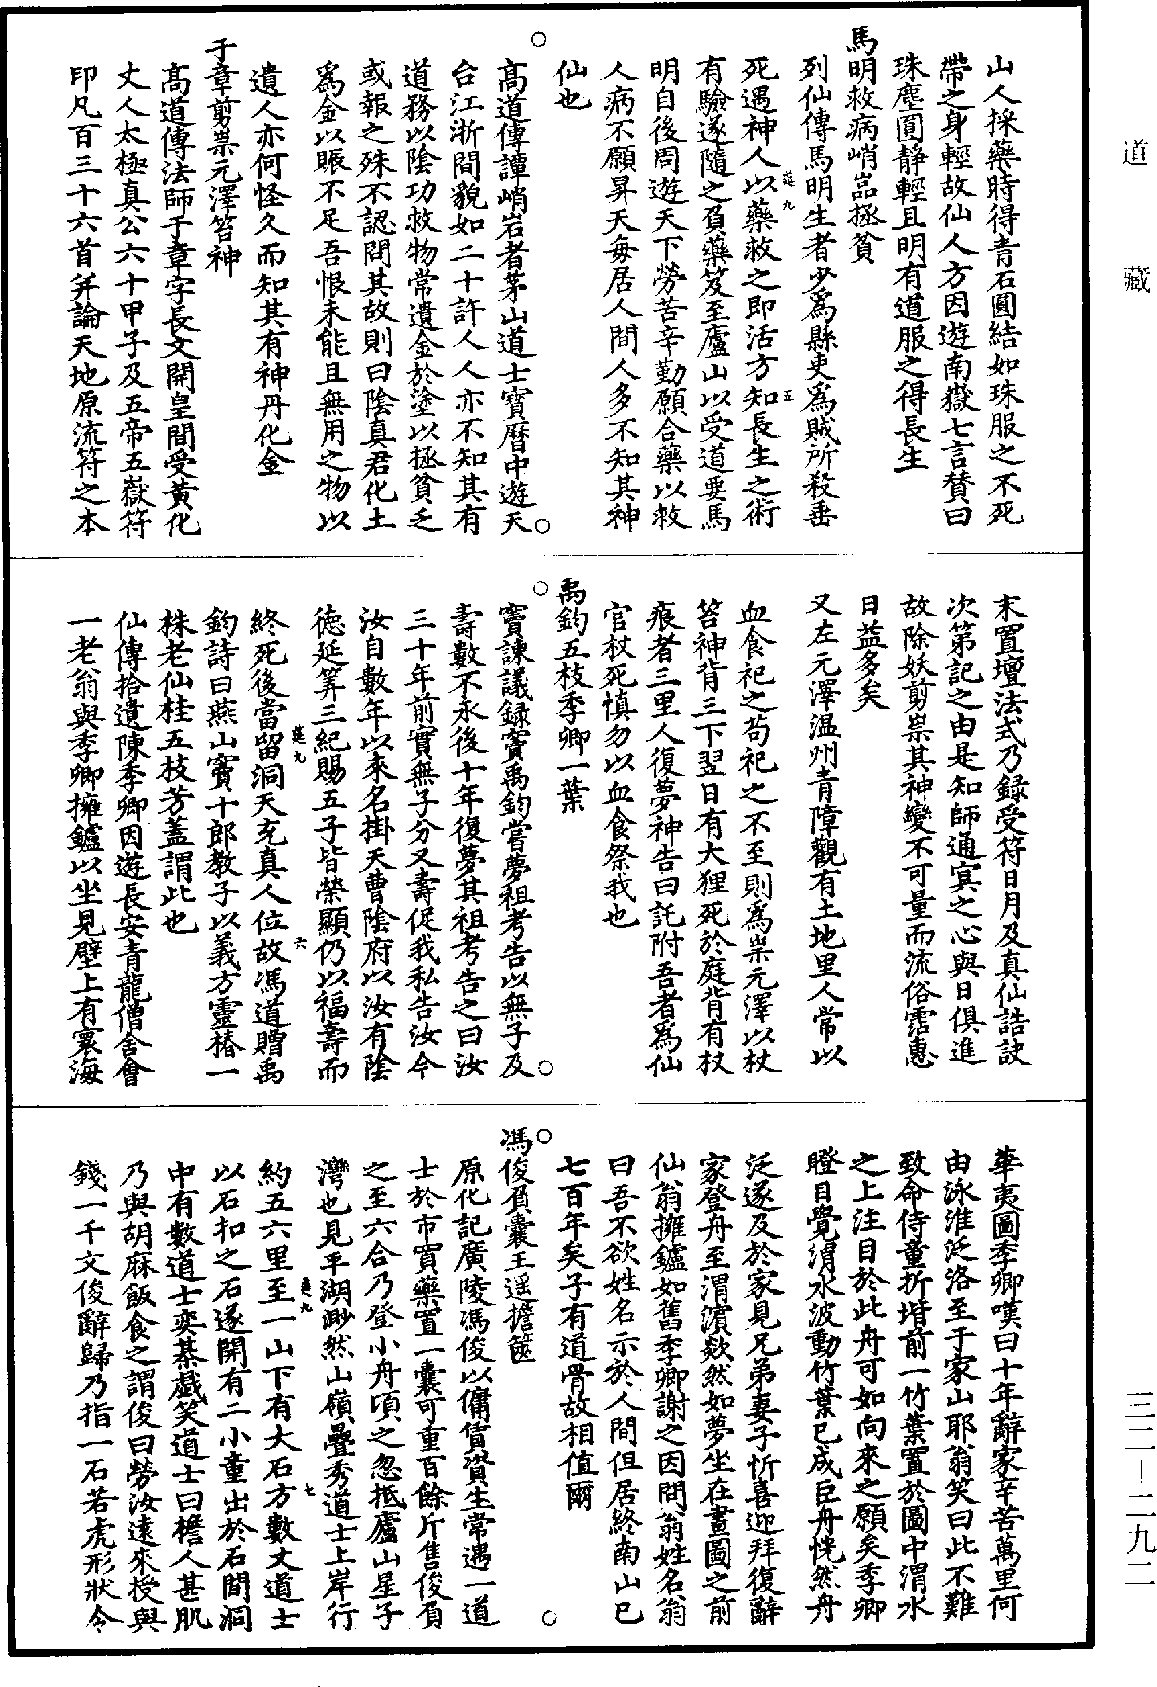 山人採藥時得青石圓結如珠服之不死
帶之身輕故仙人方因遊南嶽七言贊曰
珠塵圓靜輕且明有道服之得長生
馬明救病峭嵓拯貧
列仙傳馬明生者少為縣吏為賊所殺垂
死遇神人以藥救之即活方知長生之術
有驗遂隨之負藥笈至廬山以受道要馬
明自後周遊天下勞苦辛勤願合藥以救
人病不願昇天每居人間人多不知其神
仙也
高道傳譚峭岩者茅山道士寶曆中遊天
台江浙間貌如二十許人人亦不知其有
道務以陰功救物常遺金於塗以拯貧乏
或報之殊不認問其故則曰陰真君化土
為金以賑不足吾恨未能且無用之物以
遺人亦何怪久而知其有神丹化金
于章剪祟元澤笞神
高道傳法師于章字長文開皇間受黃化
丈人太極真公六十甲子及五帝五嶽符
印凡百三十六首并論天地原流符之本
末置壇法式乃錄受符日月及真仙誥訣
次第記之由是知師通㝠之心與日俱進
故除妖剪祟其神變不可量而流俗霑惠
日益多矣
又左元澤温州青障觀有土地里人常以
血食祀之苟祀之不至則為祟元澤以杖
笞神背三下翌日有大狸死於庭背有杖
痕者三里人復夢神告曰託附吾者為仙
官杖死慎勿以血食祭我也
禹鈞五枝季卿一葉
竇諫議錄竇禹鈞嘗夢祖考告以無子及
壽數不永後十年復夢其祖考告之曰汝
三十年前實無子分又壽促我私告汝今
汝自數年以來名掛天曹陰府以汝有陰
德延筭三紀賜五子皆榮顯仍以福壽而
終死後當留洞天充真人位故馮道贈禹
鈞詩曰燕山竇十郎教子以義方靈椿一
株老仙桂五枝芳蓋謂此也
仙傳拾遺陳季卿因遊長安青龍僧舍會
一老翁與季卿擁鑪以坐見壁上有寰海
華夷圖季卿嘆曰十年辭家辛苦萬里何
由泳淮泛洛至于家山耶翁笑曰此不難
致命侍童折堦前一竹葉置於圖中渭水
之上注目於此舟可如向來之願矣季卿
瞪目覺渭水波動竹葉已成巨舟恍然舟
泛遂及於家見兄弟妻子忻喜迎拜復辭
家登舟至渭濱欻然如夢坐在畫圖之前
仙翁擁鑪如舊季卿謝之因問翁姓名翁
曰吾不欲姓名示於人間但居終南山已
七百年矣子有道骨故相值爾
馮俊負囊王遥擔篋
原化記廣陵馮俊以傭賃資生常遇一道
士於市買藥置一囊可重百餘斤售俊負
之至六合乃登小舟頃之忽抵廬山星子
灣也見平湖渺然山嶺疊秀道士上岸行
約五六里至一山下有大石方數丈道士
以石扣之石遂開有二小童出於石間洞
中有數道士奕棊戲笑道士曰檐人甚肌
乃與胡麻飯食之謂俊曰勞汝遠來授與
錢一千文俊辭歸乃指一石若虎形狀令
道藏
三二—二九二